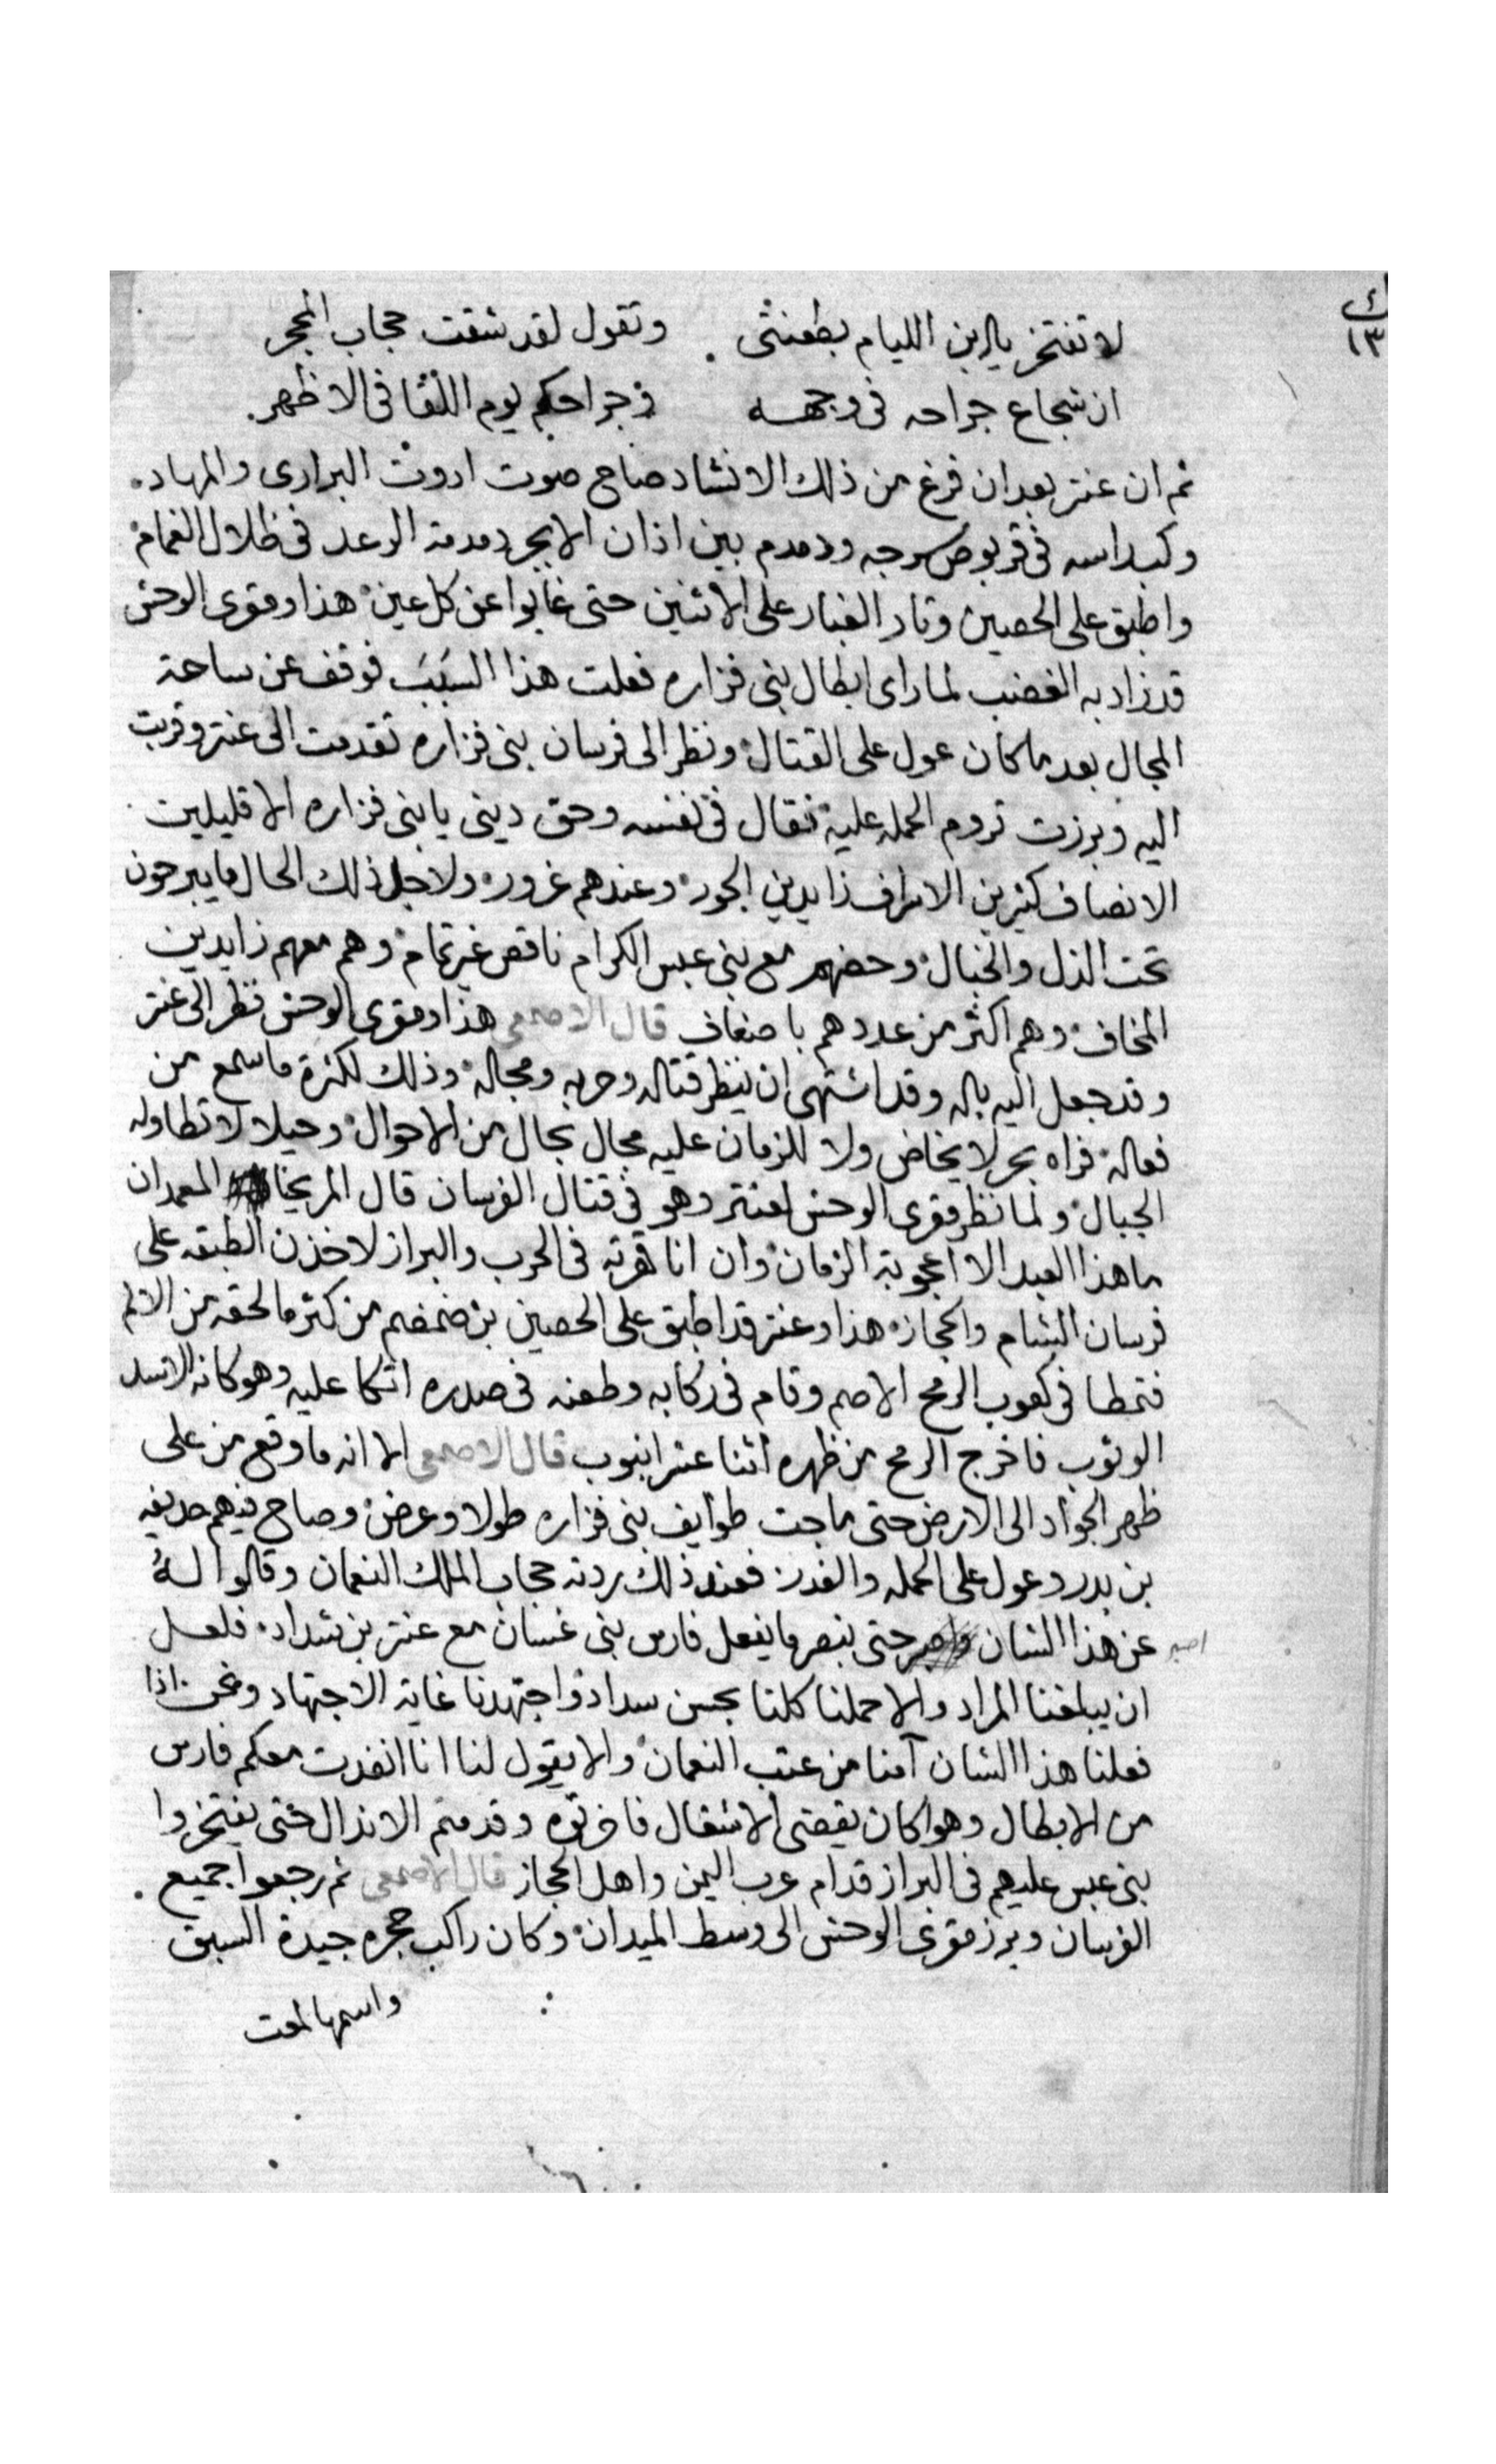 ك
١٣
لا تفتخر يا ابن الليام بطعنتى وتقول لقد شقت حجاب المجر
ان شجاع جراحه فى وجهه وجراحكم يوم اللقا فى الاظهر
ثم ان عنتر بعد ان فرغ من ذلك الانشاد صاح صوت ادوت البرارى والمهاد
وكبداسه فى قربوص سرجه ودمدم بين اذان الابجر دمدمة الرعد فى ظلال الغمام
واطبق على الحصين وثار الغبار على الاثنين حتى غابوا عن كل عين هذا ومقرى الوحش
قد زاد به الغضب لما راى ابطال بنى فزاره فعلت هذا السبب فوقف عن ساحة
المجال بعد ما كان عول على القتال ونظر الى فرسان بنى فزاره تقدمت الى عنتر وقربت
اليه وبرزت تروم الحمله عليه فقال فى نفسه وحق دينى يا بنى فزاره الا قليلين
الانصاف كثيرين الاسراف زايدين الجور وعندهم غرور ولاجل ذلك الحال ما يبرحون
تحت الذل والخبال وحضهم مع بنى عبس الكرام ناقص غير تمام وهم معهم زايدين
المخاف وهم اكثر من عددهم باضعاف قال الاصمعى هذا ومقرى الوحش نظر الى عنتر
وقد جعل اليه باله وقد اشتهى ان ينظر قتاله وحربه ومجاله وذلك لكثرة ما سمع من
فعاله فراه بحر لا يخاض ولا للزمان عليه مجال بحال من الاحوال وجبلا لا تطاوله
الجبال ولما نظر مقرى الوحش لعنتر وهو فى قتال الفرسان قال المريخا المعمدان
ما هذا العبد الا اعجوبة الزمان وان انا قهرته فى الحرب والبراز لاخذن الطبقه على
فرسان الشام والحجاز هذا وعنتر قد اطبق على الحصين بن ضمضم من كثر ما لحقه من الالم
فتمطا فى كعوب الرمح الاصم وقام فى ركابه وطعنه فى صدره اتكا عليه وهو كانه الاسد
الوثوب فاخرج الرمح من ظهره اثنا عشر انبوب قال الاصمعى الا انه ما وقع من على
ظهر الجواد الى الارض حتى ماجت طوايف بنى فزاره طولا وعرض وصاح فيهم حديفه
بن بدر وعول على الحمله والغدر فعند ذلك ردته حجاب الملك النعمان وقالوا له
اصبر عن هذا الشان حتى نبصر ما يفعل فارس بنى غسان مع عنتر بن شداد فلعل
ان يبلغنا المراد والا حملنا كلنا بحسن سداد واجتهدنا غاية الاجتهاد ونحن اذا
فعلنا هذا الشان آمنا من عتب النعمان والا يقول لنا انا انفدت معكم فارس
من الابطال وهو كان يقضى الاشغال فاخرتوه وقدمتم الاندال حتى يفتخروا
بنى عبس عليهم فى البراز قدام عرب اليمن واهل الحجاز قال الاصمعى ثم رجعوا جميع
الفرسان وبرز مقرى الوحش الى وسط الميدان وكان راكب حجره جيدة السبق
واسمها لمعت